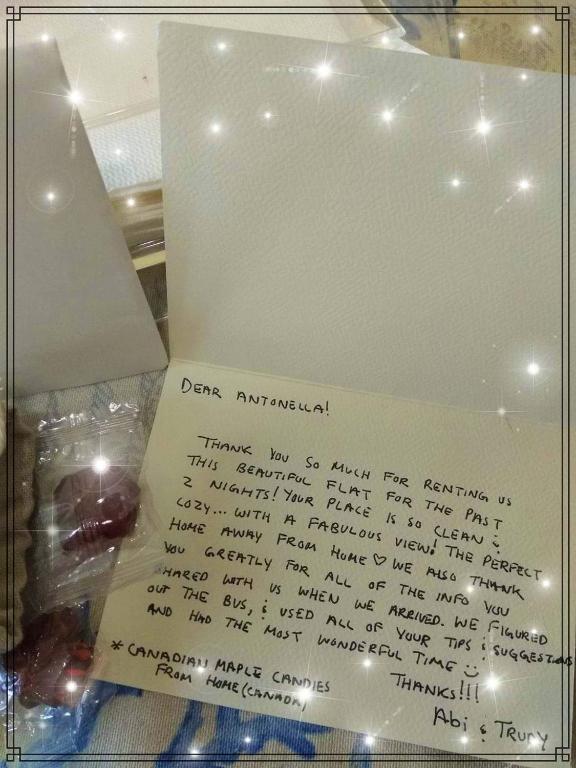 DEAR ANTONELLA!
THANK YOU SO MUCH FOR RENTING US
THIS BEAUTIFUL FLAT FOR THE PAST
2 NIGHTS! YOUR PLACE IS SO CLEAN &
COZY... WITH A FABULOUS VIEW! THE PERFECT
HOME AWAY FROM HOME ♡ WE ALSO THANK
YOU GREATLY FOR ALL OF THE INFO YOU
SHARED WITH US WHEN WE ARRIVED. WE FIGURED
OUT THE BUS, & USED ALL OF YOUR TIPS & SUGGESTIONS
AND HAD THE MOST WONDERFUL TIME ☺
THANKS!!!
Abi & TRUDY
* CANADIAN MAPLE CANDIES
FROM HOME (CANADA)